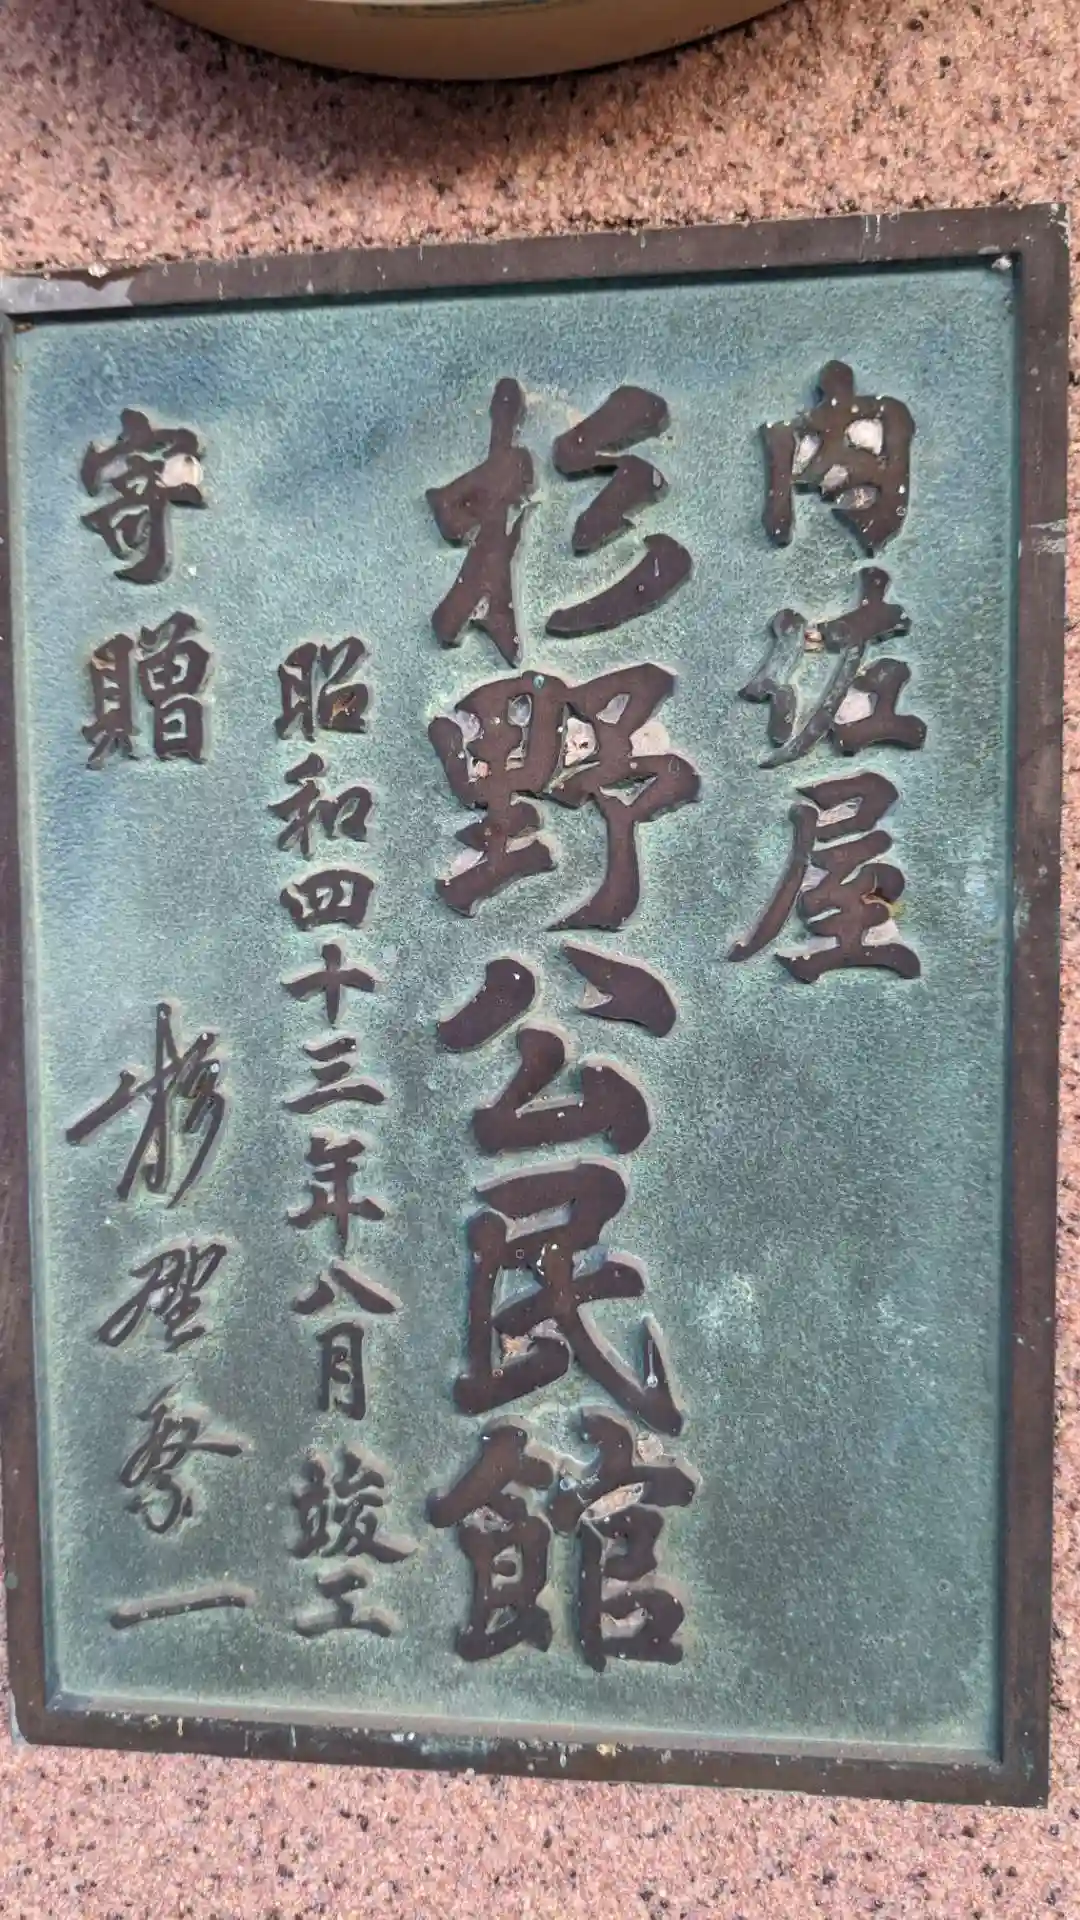 内佐屋
杉野公民館
昭和四十三年八月竣工
寄贈 杉野繁一